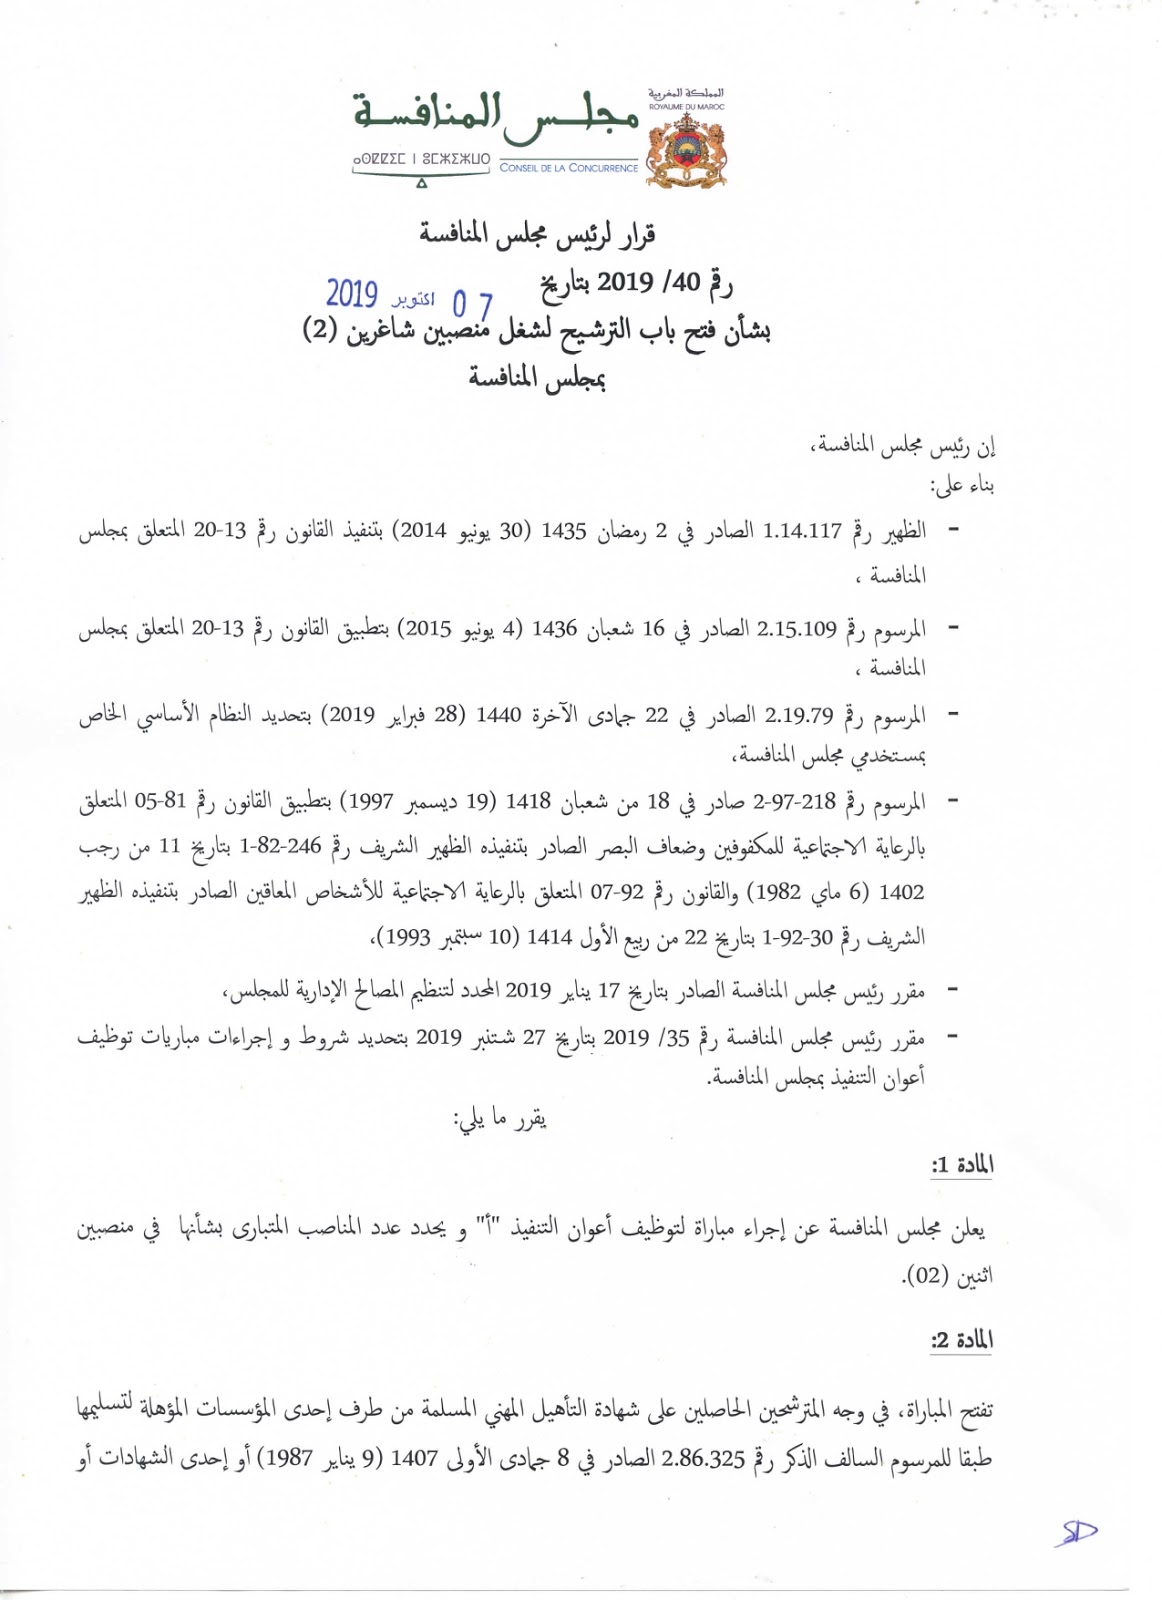 المملكة المغربية
ROYAUME DU MAROC
مجلس المنافسة
ⴰⵙⵇⵇⵉⵎ ⵏ ⵓⵎⵣⵉⵣⵡⵔ
CONSEIL DE LA CONCURRENCE
قرار لرئيس مجلس المنافسة
رقم 40/ 2019 بتاريخ 07 اكتوبر 2019
بشأن فتح باب الترشيح لشغل منصبين شاغرين (2)
بمجلس المنافسة
إن رئيس مجلس المنافسة،
بناء على:
- الظهير رقم 1.14.117 الصادر في 2 رمضان 1435 (30 يونيو 2014) بتنفيذ القانون رقم 13-20 المتعلق بمجلس
المنافسة ،
- المرسوم رقم 2.15.109 الصادر في 16 شعبان 1436 (4 يونيو 2015) بتطبيق القانون رقم 13-20 المتعلق بمجلس
المنافسة ،
- المرسوم رقم 2.19.79 الصادر في 22 جمادى الآخرة 1440 (28 فبراير 2019) بتحديد النظام الأساسي الخاص
بمستخدمي مجلس المنافسة،
- المرسوم رقم 218-97-2 صادر في 18 من شعبان 1418 (19 ديسمبر 1997) بتطبيق القانون رقم 81-05 المتعلق
بالرعاية الاجتماعية للمكفوفين وضعاف البصر الصادر بتنفيذه الظهير الشريف رقم 246-82-1 بتاريخ 11 من رجب
1402 (6 ماي 1982) والقانون رقم 92-07 المتعلق بالرعاية الاجتماعية للأشخاص المعاقين الصادر بتنفيذه الظهير
الشريف رقم 30-92-1 بتاريخ 22 من ربيع الأول 1414 (10 سبتمبر 1993)،
- مقرر رئيس مجلس المنافسة الصادر بتاريخ 17 يناير 2019 المحدد لتنظيم المصالح الإدارية للمجلس،
- مقرر رئيس مجلس المنافسة رقم 35/ 2019 بتاريخ 27 شتنبر 2019 بتحديد شروط و إجراءات مباريات توظيف
أعوان التنفيذ بمجلس المنافسة.
يقرر ما يلي:
المادة 1:
يعلن مجلس المنافسة عن إجراء مباراة لتوظيف أعوان التنفيذ "أ" و يحدد عدد المناصب المتبارى بشأنها في منصبين
اثنين (02).
المادة 2:
تفتح المباراة، في وجه المترشحين الحاصلين على شهادة التأهيل المهني المسلمة من طرف إحدى المؤسسات المؤهلة لتسليمها
طبقا للمرسوم السالف الذكر رقم 2.86.325 الصادر في 8 جمادى الأولى 1407 (9 يناير 1987) أو إحدى الشهادات أو